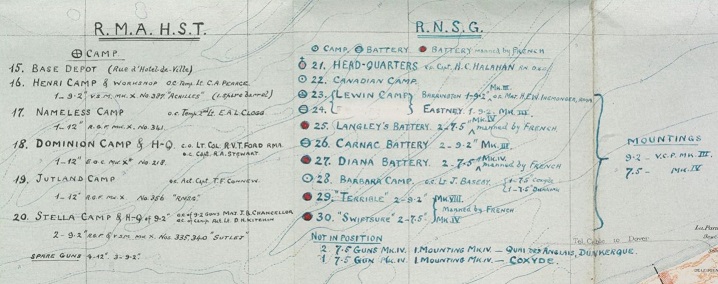 R.M.A. H.S.T.
CAMP
15. BASE DEPOT (Rue d'Hotel-de-Ville)
16. HENRI CAMP & WORKSHOP O.C. Temp. Lt. C.A. PEARCE
1 – 9·2" V.S.M. MK X No. 387 "ACHILLES"
17. NAMELESS CAMP O.C. Temp. 2nd Lt. E.A.L. CLOGG
1 – 12" MK X. No. 361.
18. DOMINION CAMP & H-Q. C.O. Lt Col. R.V.T. FORD RMA.
O.C. Capt. R.A. STEWART
1 – 12" E.O.C. MKX* No 218.
19. JUTLAND CAMP O.C. Act. Capt. T.F.
1 – 12" MK X No 356
20. STELLA CAMP & H-Q OF 9·2" O.C. of 9·2 GUNS MAJ. J.B. CHANCELLOR
O.C. of CAMP Act. Lt. D.H. KITCHIN
2 – 9·2" & V.S.M. MK. X. Nos 335,340 "SUTLEJ"
SPARE GUNS 4–12" 3–9·2"
R.N.S.G.
CAMP, BATTERY BATTERY manned by FRENCH
21. HEAD-QUARTERS Capt. H.C. HALAHAN R.N. D.S.O.
22. CANADIAN CAMP.
23. LEWIN CAMP BARRINGTON 1–9·2" MK.III. O.C. Mat. H.E.W. IREMONGER, RMA
24. EASTNEY 1–9·2" MK. III.
25. LANGLEY'S BATTERY. 2–7·5" MK.IV manned by FRENCH
26. CARNAC BATTERY 2–9·2" MK.III.
27. DIANA BATTERY. 2–7·5" MK.IV manned by FRENCH
28. BARBARA CAMP. O.C. Lt J. 1–7·5"
1–7·5"
29. "TERRIBLE" 2–9·2" MK.VIII
Manned by FRENCH
30. "SWIFTSURE" 2–7·5" MK.IV
NOT IN POSITION
2 7·5" GUNS MK.IV. 1.MOUNTING MK.IV. — QUAI DES ANGLAIS, DUNKERQUE.
1 7·5" GUN MK.IV. 1.MOUNTING MK.IV — COXYDE.
MOUNTINGS
9·2 – V.C.P. MK. III.
7.5 – MK. IV
Tel. Cable to Dover